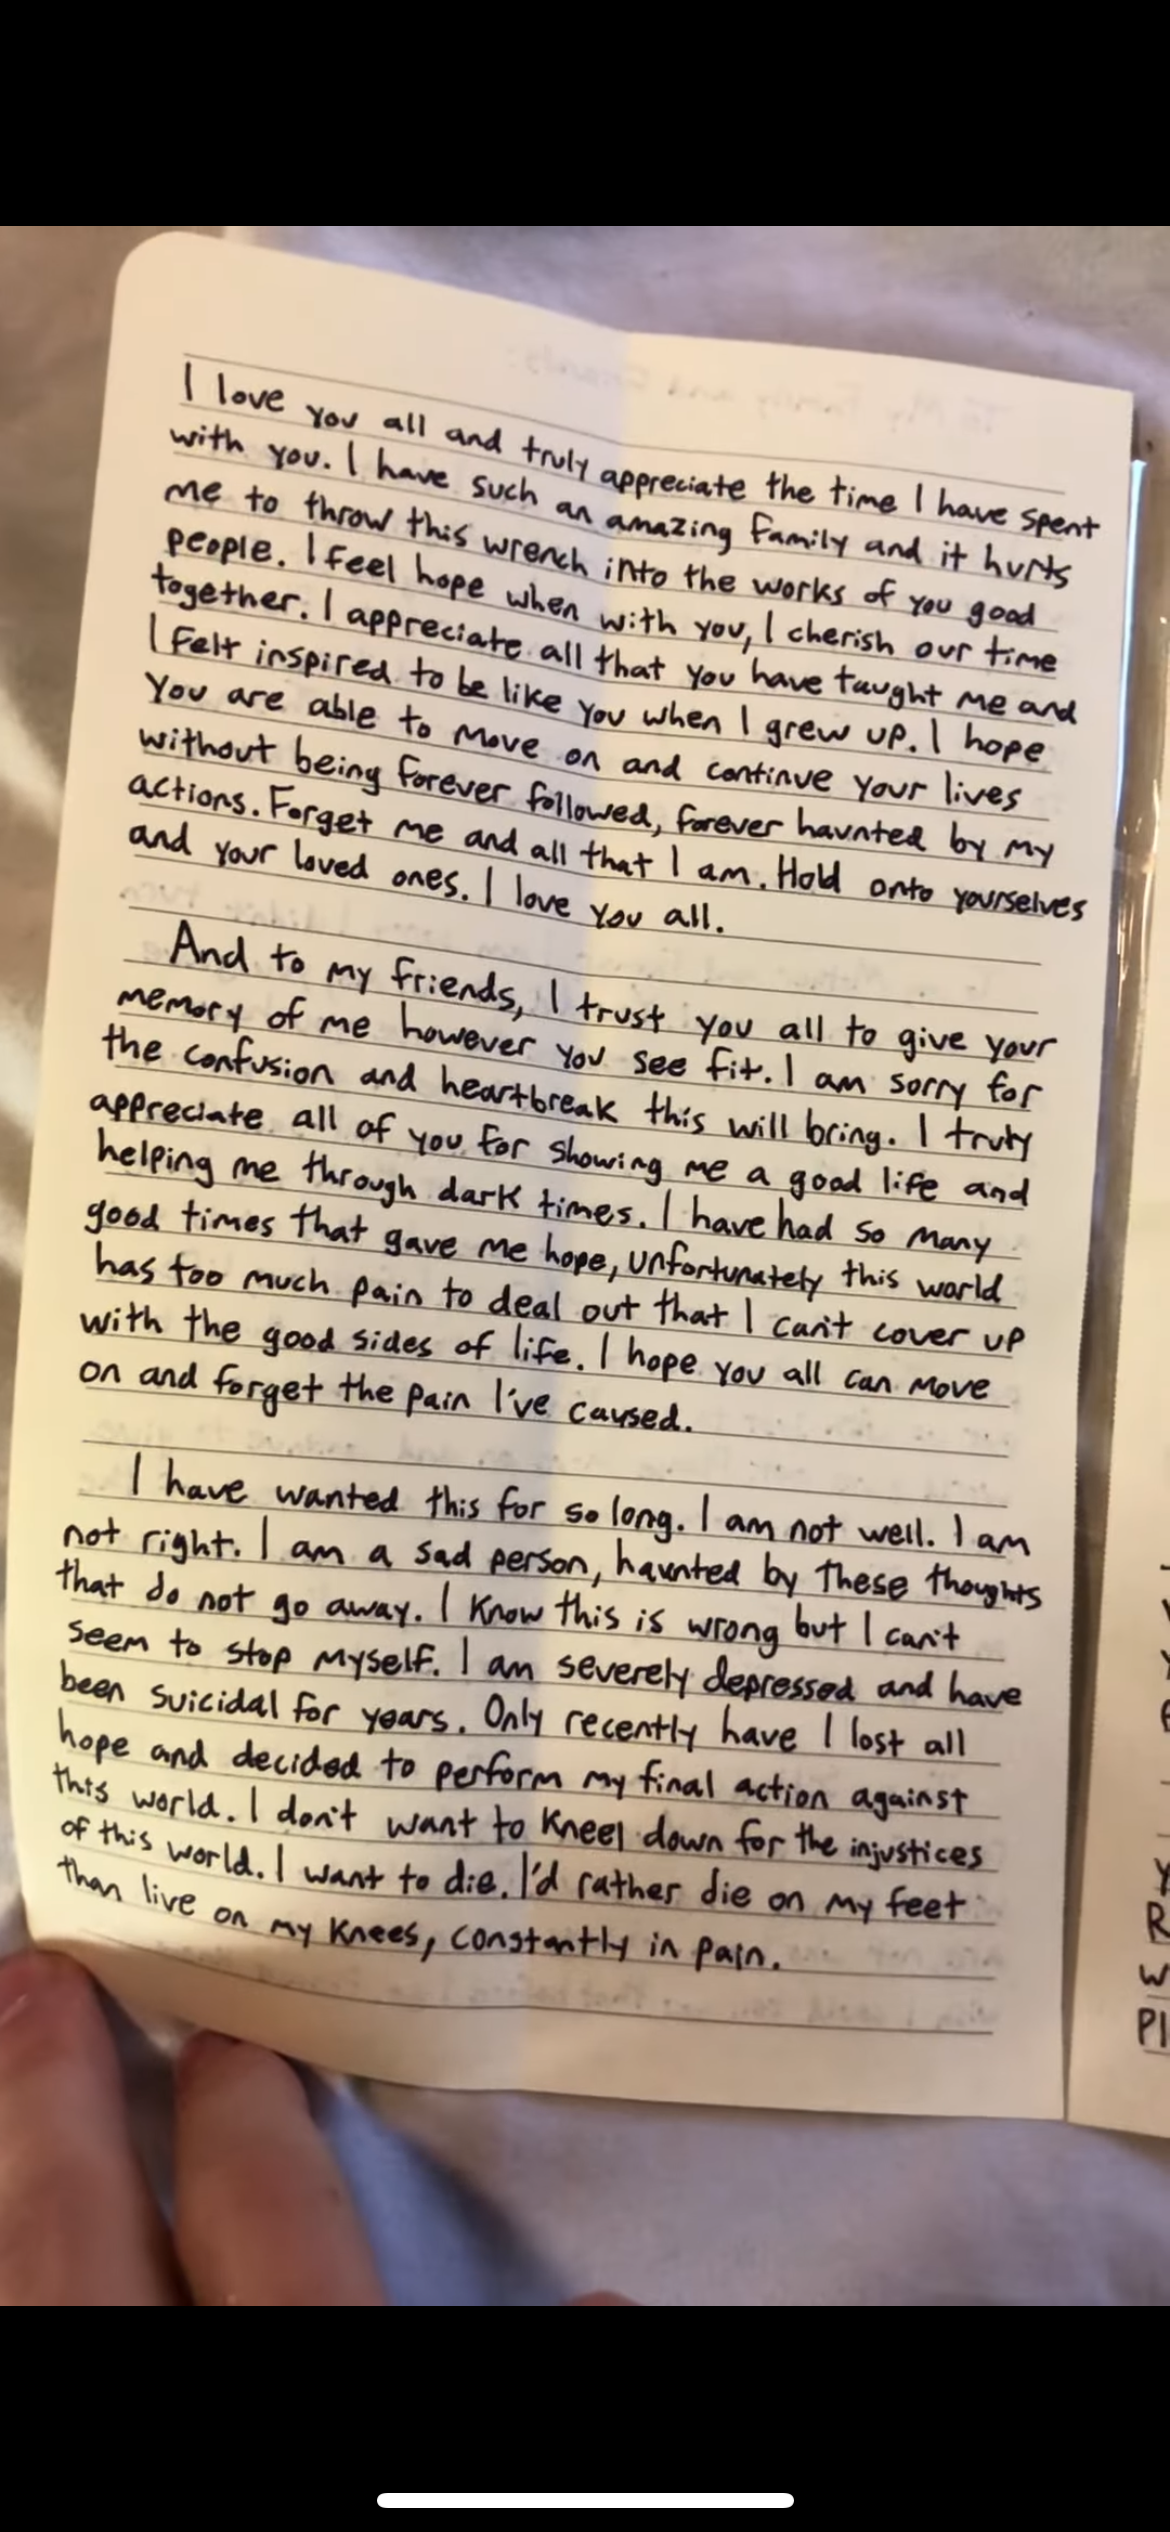 I love you all and truly appreciate the time I have spent
with you. I have such an amazing family and it hurts
me to throw this wrench into the works of you good
people. I feel hope when with you, I cherish our time
together. I appreciate all that you have taught me and
I felt inspired to be like you when I grew up. I hope
You are able to move on and continue your lives
without being forever followed, forever haunted by my
actions. Forget me and all that I am. Hold onto yourselves
and your loved ones. I love you all.
And to my friends, I trust you all to give your
memory of me however you see fit. I am sorry for
the confusion and heartbreak this will bring. I truly
appreciate all of you for showing me a good life and
helping me through dark times. I have had so many
good times that gave me hope, unfortunately this world
has too much pain to deal out that I can't cover up
with the good sides of life. I hope you all can move
on and forget the pain I've caused.
I have wanted this for so long. I am not well. I am
not right. I am a sad person, haunted by these thoughts
that do not go away. I know this is wrong but I can't
seem to stop myself. I am severely depressed and have
been suicidal for years. Only recently have I lost all
hope and decided to perform my final action against
this world. I don't want to kneel down for the injustices
of this world. I want to die. I'd rather die on my feet
than live on my knees, constantly in pain.